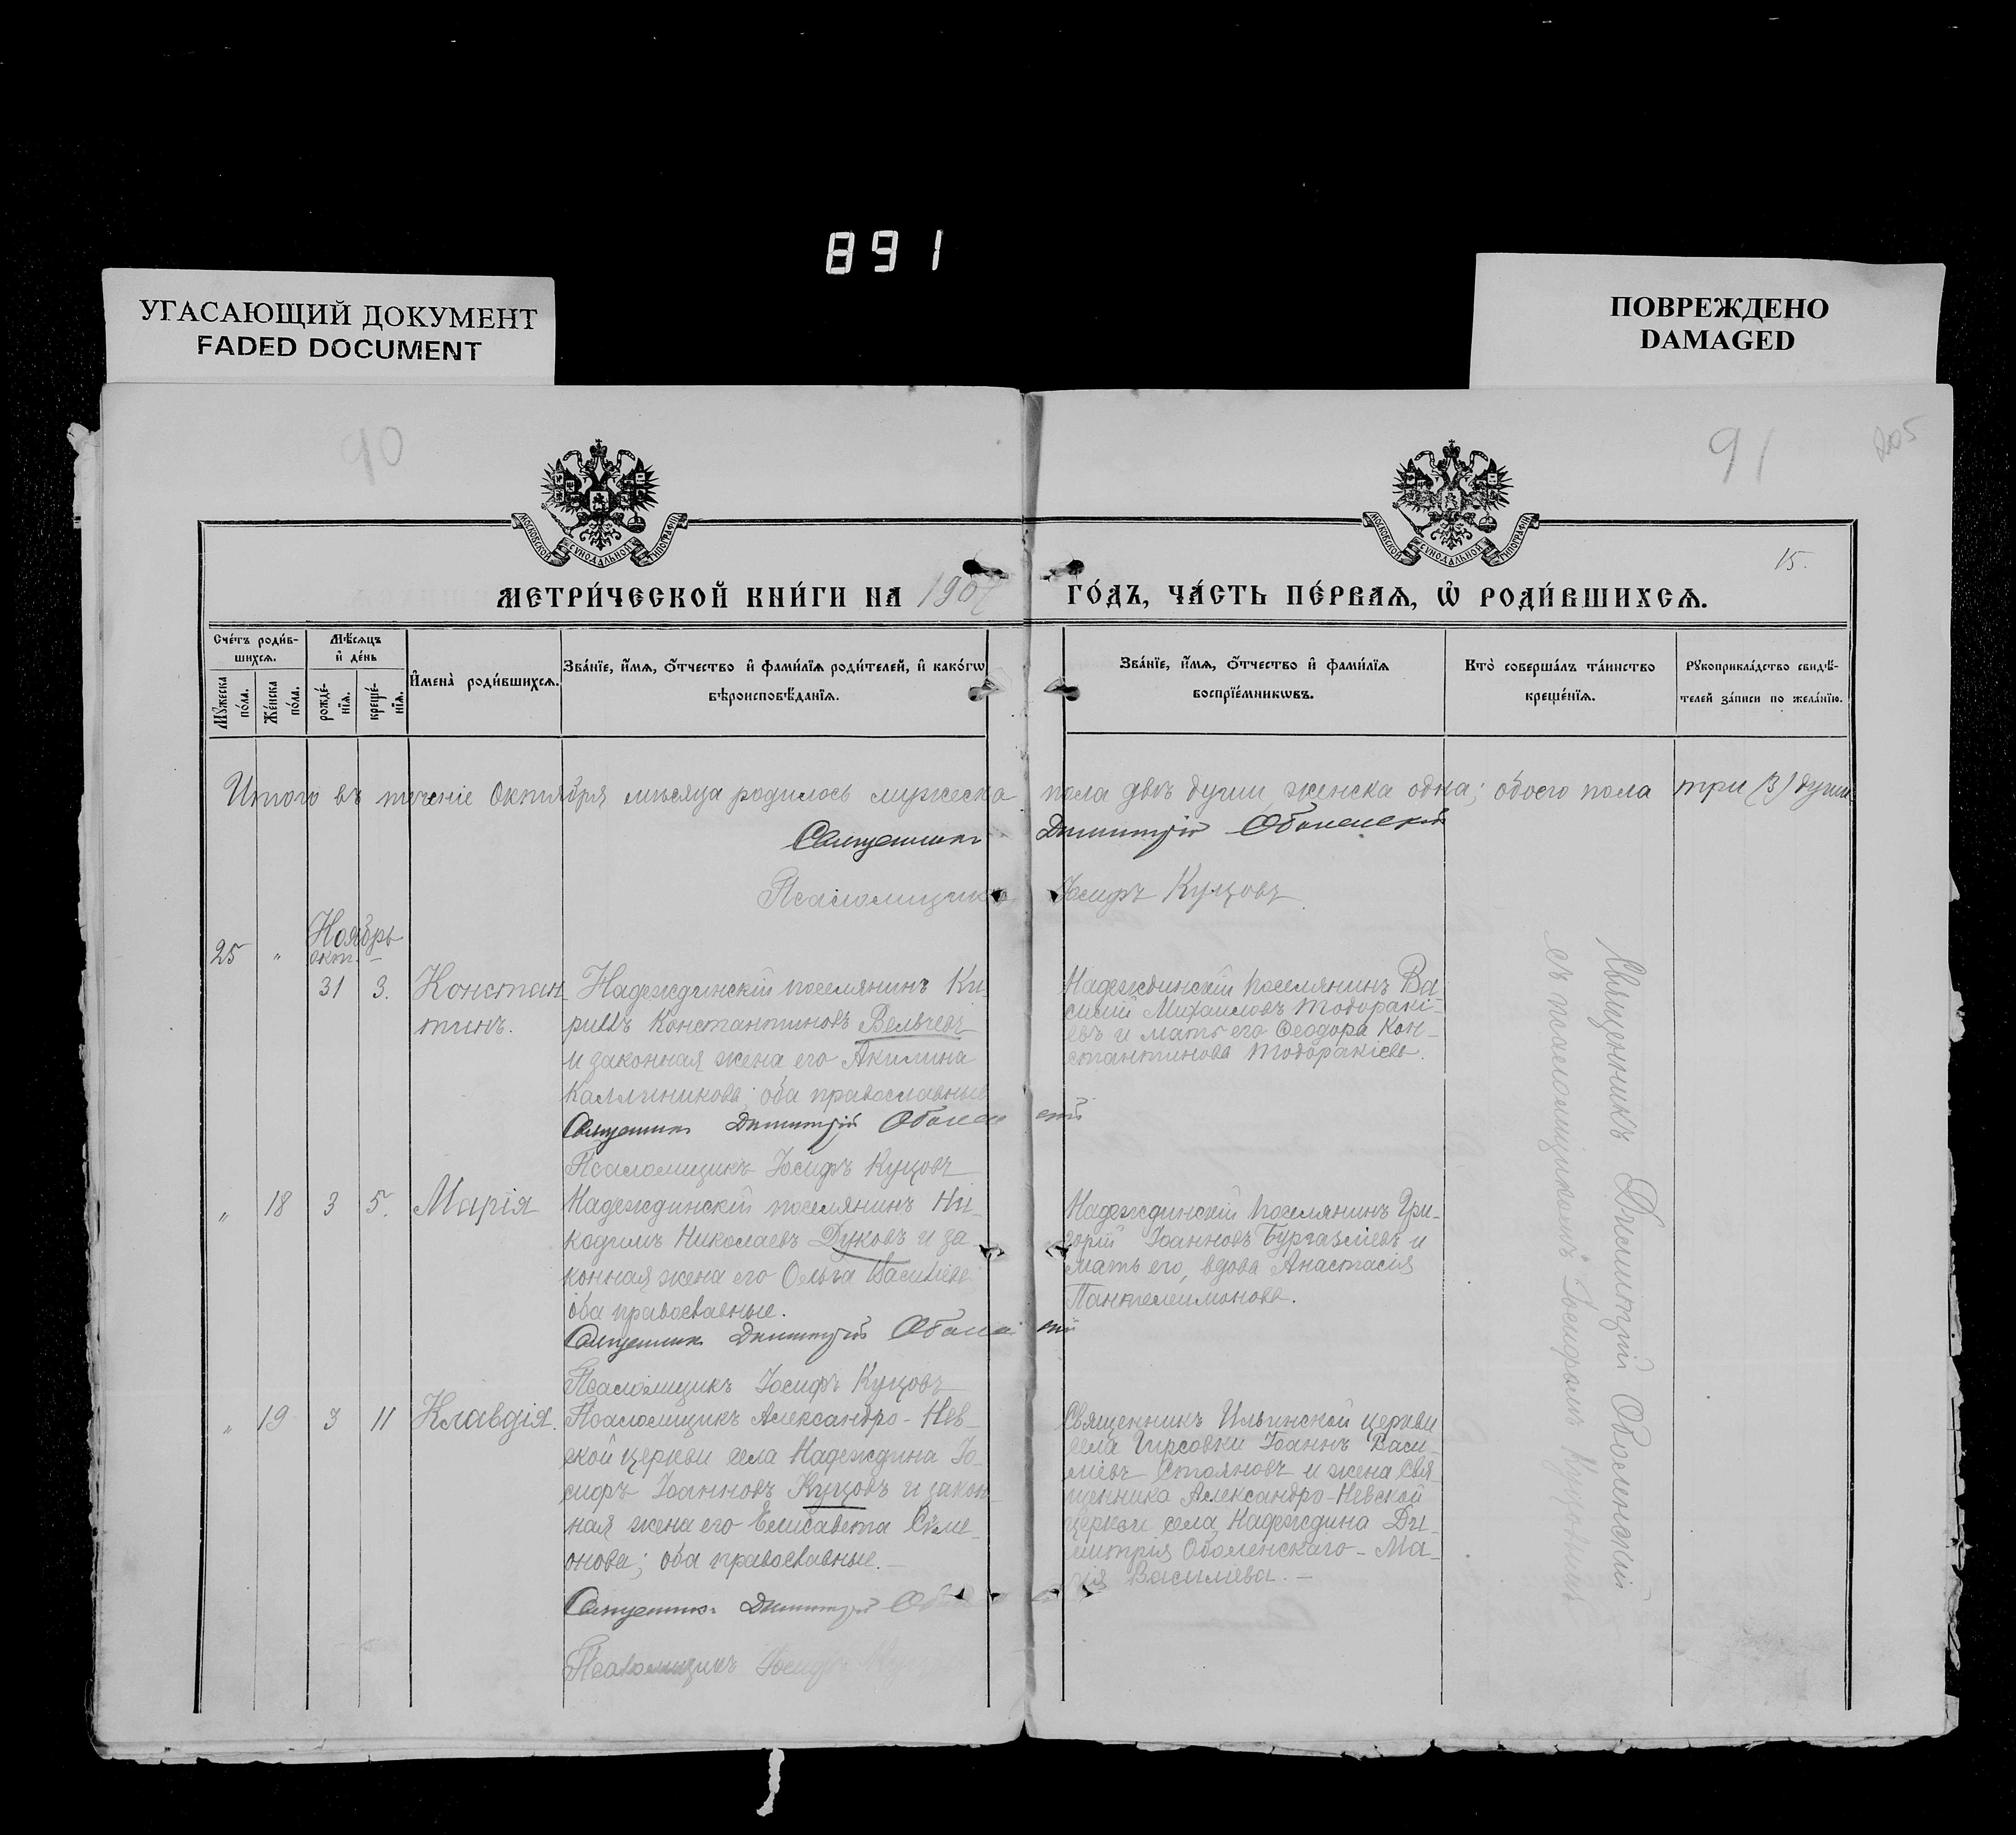 891
УГАСАЮЩИЙ ДОКУМЕНТ
FADED DOCUMENT
ПОВРЕЖДЕНО
DAMAGED
90
91
205
МОСКОВСКОЙ СѴНОДАЛЬНОЙ ТИПОГРАФІИ
МОСКОВСКОЙ СѴНОДАЛЬНОЙ ТИПОГРАФІИ
15.
МЕТРИ́ЧЕСКОЙ КНИ́ГИ НА 190 ГО́ДЪ, ЧА́СТЬ ПЕ́РВАѦ, Ѡ҆ РОДИ́ВШИХСѦ.
Сче́тъ роди́в-
шихсѧ.
Мꙋ́жеска по́ла.
Же́нска по́ла.
Мѣ́сѧцъ
и҆ де́нь
рожде́-
нїѧ.
креще́-
нїѧ.
И҆мена̀ роди́вшихсѧ.
Зва́нїе, и҆́мѧ, ѻ҆́тчество и҆ фами́лїѧ роди́телей, и҆ како́гѡ
вѣроисповѣ́данїѧ.
Зва́нїе, и҆́мѧ, ѻ҆́тчество и҆ фами́лїѧ
воспрїе́мникѡвъ.
Кто̀ соверша́лъ та́инство
креще́нїѧ.
Рꙋкоприкла́дство свидѣ́-
телей за́писи по жела́нїю.
Итого въ теченіе Октября мѣсяца родилось мужеска пола двѣ души, женска одна; обоего пола три (3) души
Священникъ Димитрій Оболенскій
Псаломщикъ Іосифъ Куцовъ
Ноябрь
25 " окт. –
31 3. Констан-
тинъ.
Надеждинскій поселянинъ Ки-
риллъ Константиновъ Вельчевъ
и законная жена его Акилина
Каллиникова; оба православные
Священникъ Димитрій Оболенскій
Псаломщикъ Іосифъ Куцовъ
Надеждинскій поселянинъ Ва-
силій Михаиловъ Тодоракі-
евъ и мать его Ѳеодора Кон-
стантинова Тодоракіева.
" 18 3 5. Марія
Надеждинскій поселянинъ Ни-
кодимъ Николаевъ Дуковъ и за-
конная жена его Ольга Василіева
оба православные.
Священникъ Димитрій Оболенскій
Псаломщикъ Іосифъ Куцовъ
Надеждинскій поселянинъ Гри-
горій Іоанновъ Бургазліевъ и
мать его, вдова Анастасія
Пантелеимонова.
" 19 3 11 Клавдія.
Псаломщикъ Александро-Нев-
ской церкви села Надеждина Іо-
сифъ Іоанновъ Куцовъ и закон-
ная жена его Елисавета Симе-
онова; оба православные. –
Священникъ Димитрій
Псаломщикъ Іосифъ
Священникъ Ильинской церкви
села Гирсовки Іоаннъ Васи-
ліевъ Стояновъ и жена свя-
щенника Александро-Невской
церкви села Надеждина Ди-
митрія Оболенскаго – Ма-
рія Василіева. –
Священникъ Димитрій Оболенскій
съ псаломщикомъ Іосифомъ Куцовымъ